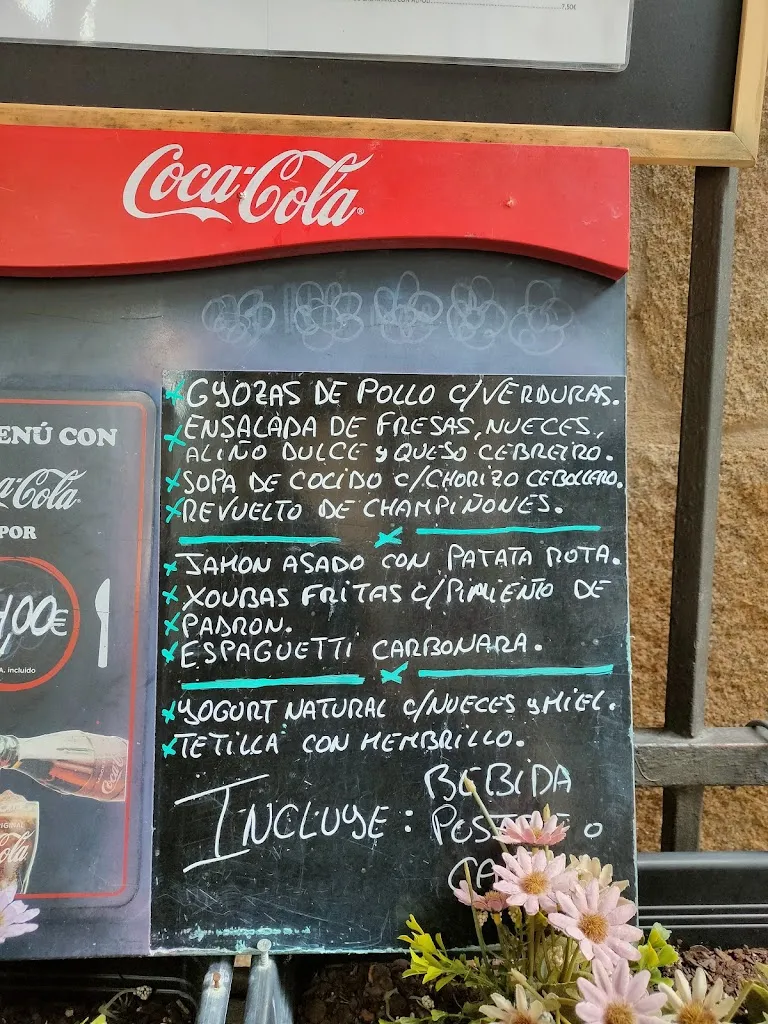 7,50€
Coca-Cola
GYOZAS DE POLLO C/VERDURAS.
ENSALADA DE FRESAS, NUECES,
ALIÑO DULCE Y QUESO CEBREIRO.
SOPA DE COCIDO C/CHORIZO CEBOLLERO.
REVUELTO DE CHAMPIÑONES.
JAMON ASADO CON PATATA ROTA.
XOUBAS FRITAS C/PIMIENTO DE
PADRON.
ESPAGUETTI CARBONARA.
YOGURT NATURAL C/NUECES Y MIEL.
TETILLA CON MEMBRILLO.
INCLUYE: BEBIDA
O
CON
POR
00€
incluido